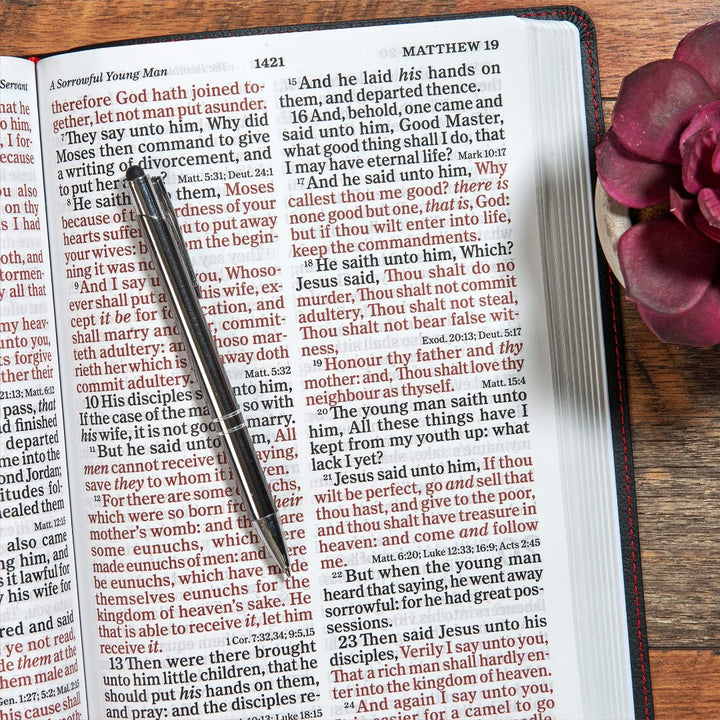 Servant.
that he
to him,
I for-
because
ou also
on thy
as I had
oth, and
tormen-
ay all that
my heav-
unto you,
ts forgive
21:13; Matt. 6:12
pass, that
d finished
departed
me into the
nd Jordan;
titudes fol-
healed them
Matt. 12:15
also came
ng him, and
is it lawful for
y his wife for
red and said
e not read,
de them at the
em male and
Gen. 1:27; 5:2; Mal. 2:15
his cause shall
A Sorrowful Young Man
1421
MATTHEW 19
therefore God hath joined to-
gether, let not man put asunder.
7They say unto him, Why did
Moses then command to give
a writing of divorcement, and
to put her Matt. 5:31; Deut. 24:1
8He saith them, Moses
because of rdness of your
hearts suffer you to put away
your wives: from the begin-
ning it was
9And I say you, Whoso-
ever shall put his wife, ex-
cept it be for cation, and
shall marry commit-
teth adultery: oso mar-
rieth her which away doth
commit adultery. Matt. 5:32
10 His disciples unto him,
If the case of the ma so with
his wife, it is not go marry.
11But he said unto m, All
men cannot receive ying,
save they to whom it en.
12For there are some ,
which were so born fro heir
mother's womb: and th are
some eunuchs, which
made eunuchs of men: and
be eunuchs, which have m
themselves eunuchs for the
kingdom of heaven's sake. He
that is able to receive it, let him
receive it. 1 Cor. 7:32,34; 9:5,15
13Then were there brought
unto him little children, that he
should put his hands on them,
and pray: and the disciples re-
10:13; Luke 18:15
15And he laid his hands on
them, and departed thence.
16And, behold, one came and
said unto him, Good Master,
what good thing shall I do, that
I may have eternal life? Mark 10:17
17And he said unto him, Why
callest thou me good? there is
none good but one, that is, God:
but if thou wilt enter into life,
keep the commandments.
18He saith unto him, Which?
Jesus said, Thou shalt do no
murder, Thou shalt not commit
adultery, Thou shalt not steal,
Thou shalt not bear false wit-
ness, Exod. 20:13; Deut. 5:17
19Honour thy father and thy
mother: and, Thou shalt love thy
neighbour as thyself. Matt. 15:4
20The young man saith unto
him, All these things have I
kept from my youth up: what
lack I yet?
21Jesus said unto him, If thou
wilt be perfect, go and sell that
thou hast, and give to the poor,
and thou shalt have treasure in
heaven: and come and follow
me. Matt. 6:20; Luke 12:33; 16:9; Acts 2:45
22But when the young man
heard that saying, he went away
sorrowful: for he had great pos-
sessions.
23Then said Jesus unto his
disciples, Verily I say unto you,
That a rich man shall hardly en-
ter into the kingdom of heaven.
24And again I say unto you,
It is easier for a camel to go